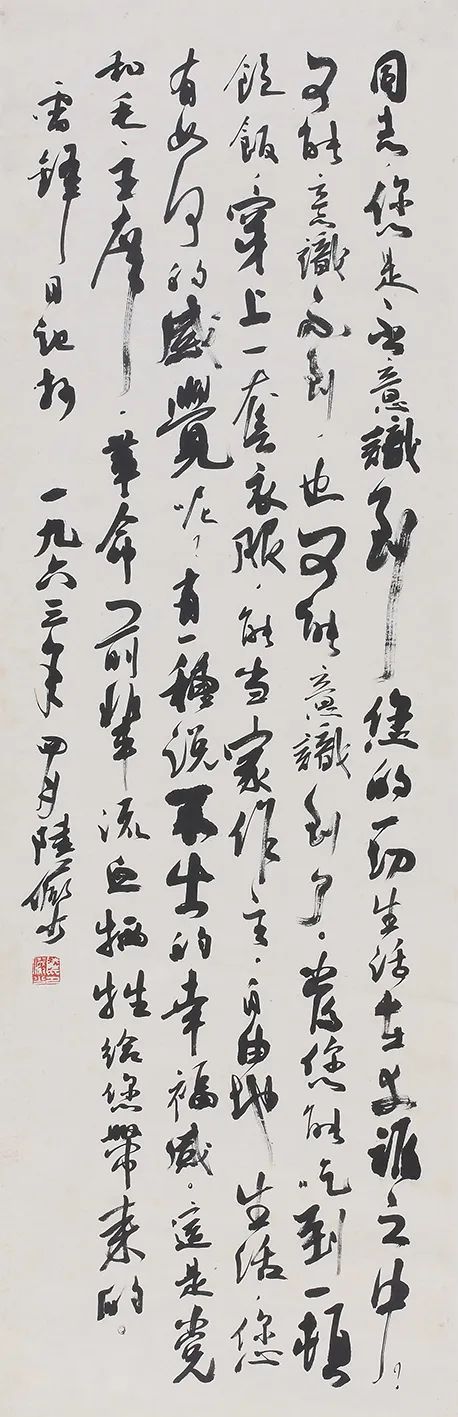 同志，您是否意識到您的一切生活在友誼之中？
可能意識不到，也可能意識到了。當您能吃到一頓
飽飯，穿上一套衣服，能当家作主，自由地生活，您
有如何的感覺呢？有一種说不出的幸福感。這是党
和毛主席，革命前輩流血牺牲给您帶来的。
雷鋒日記抄 一九六三年四月陸儼少